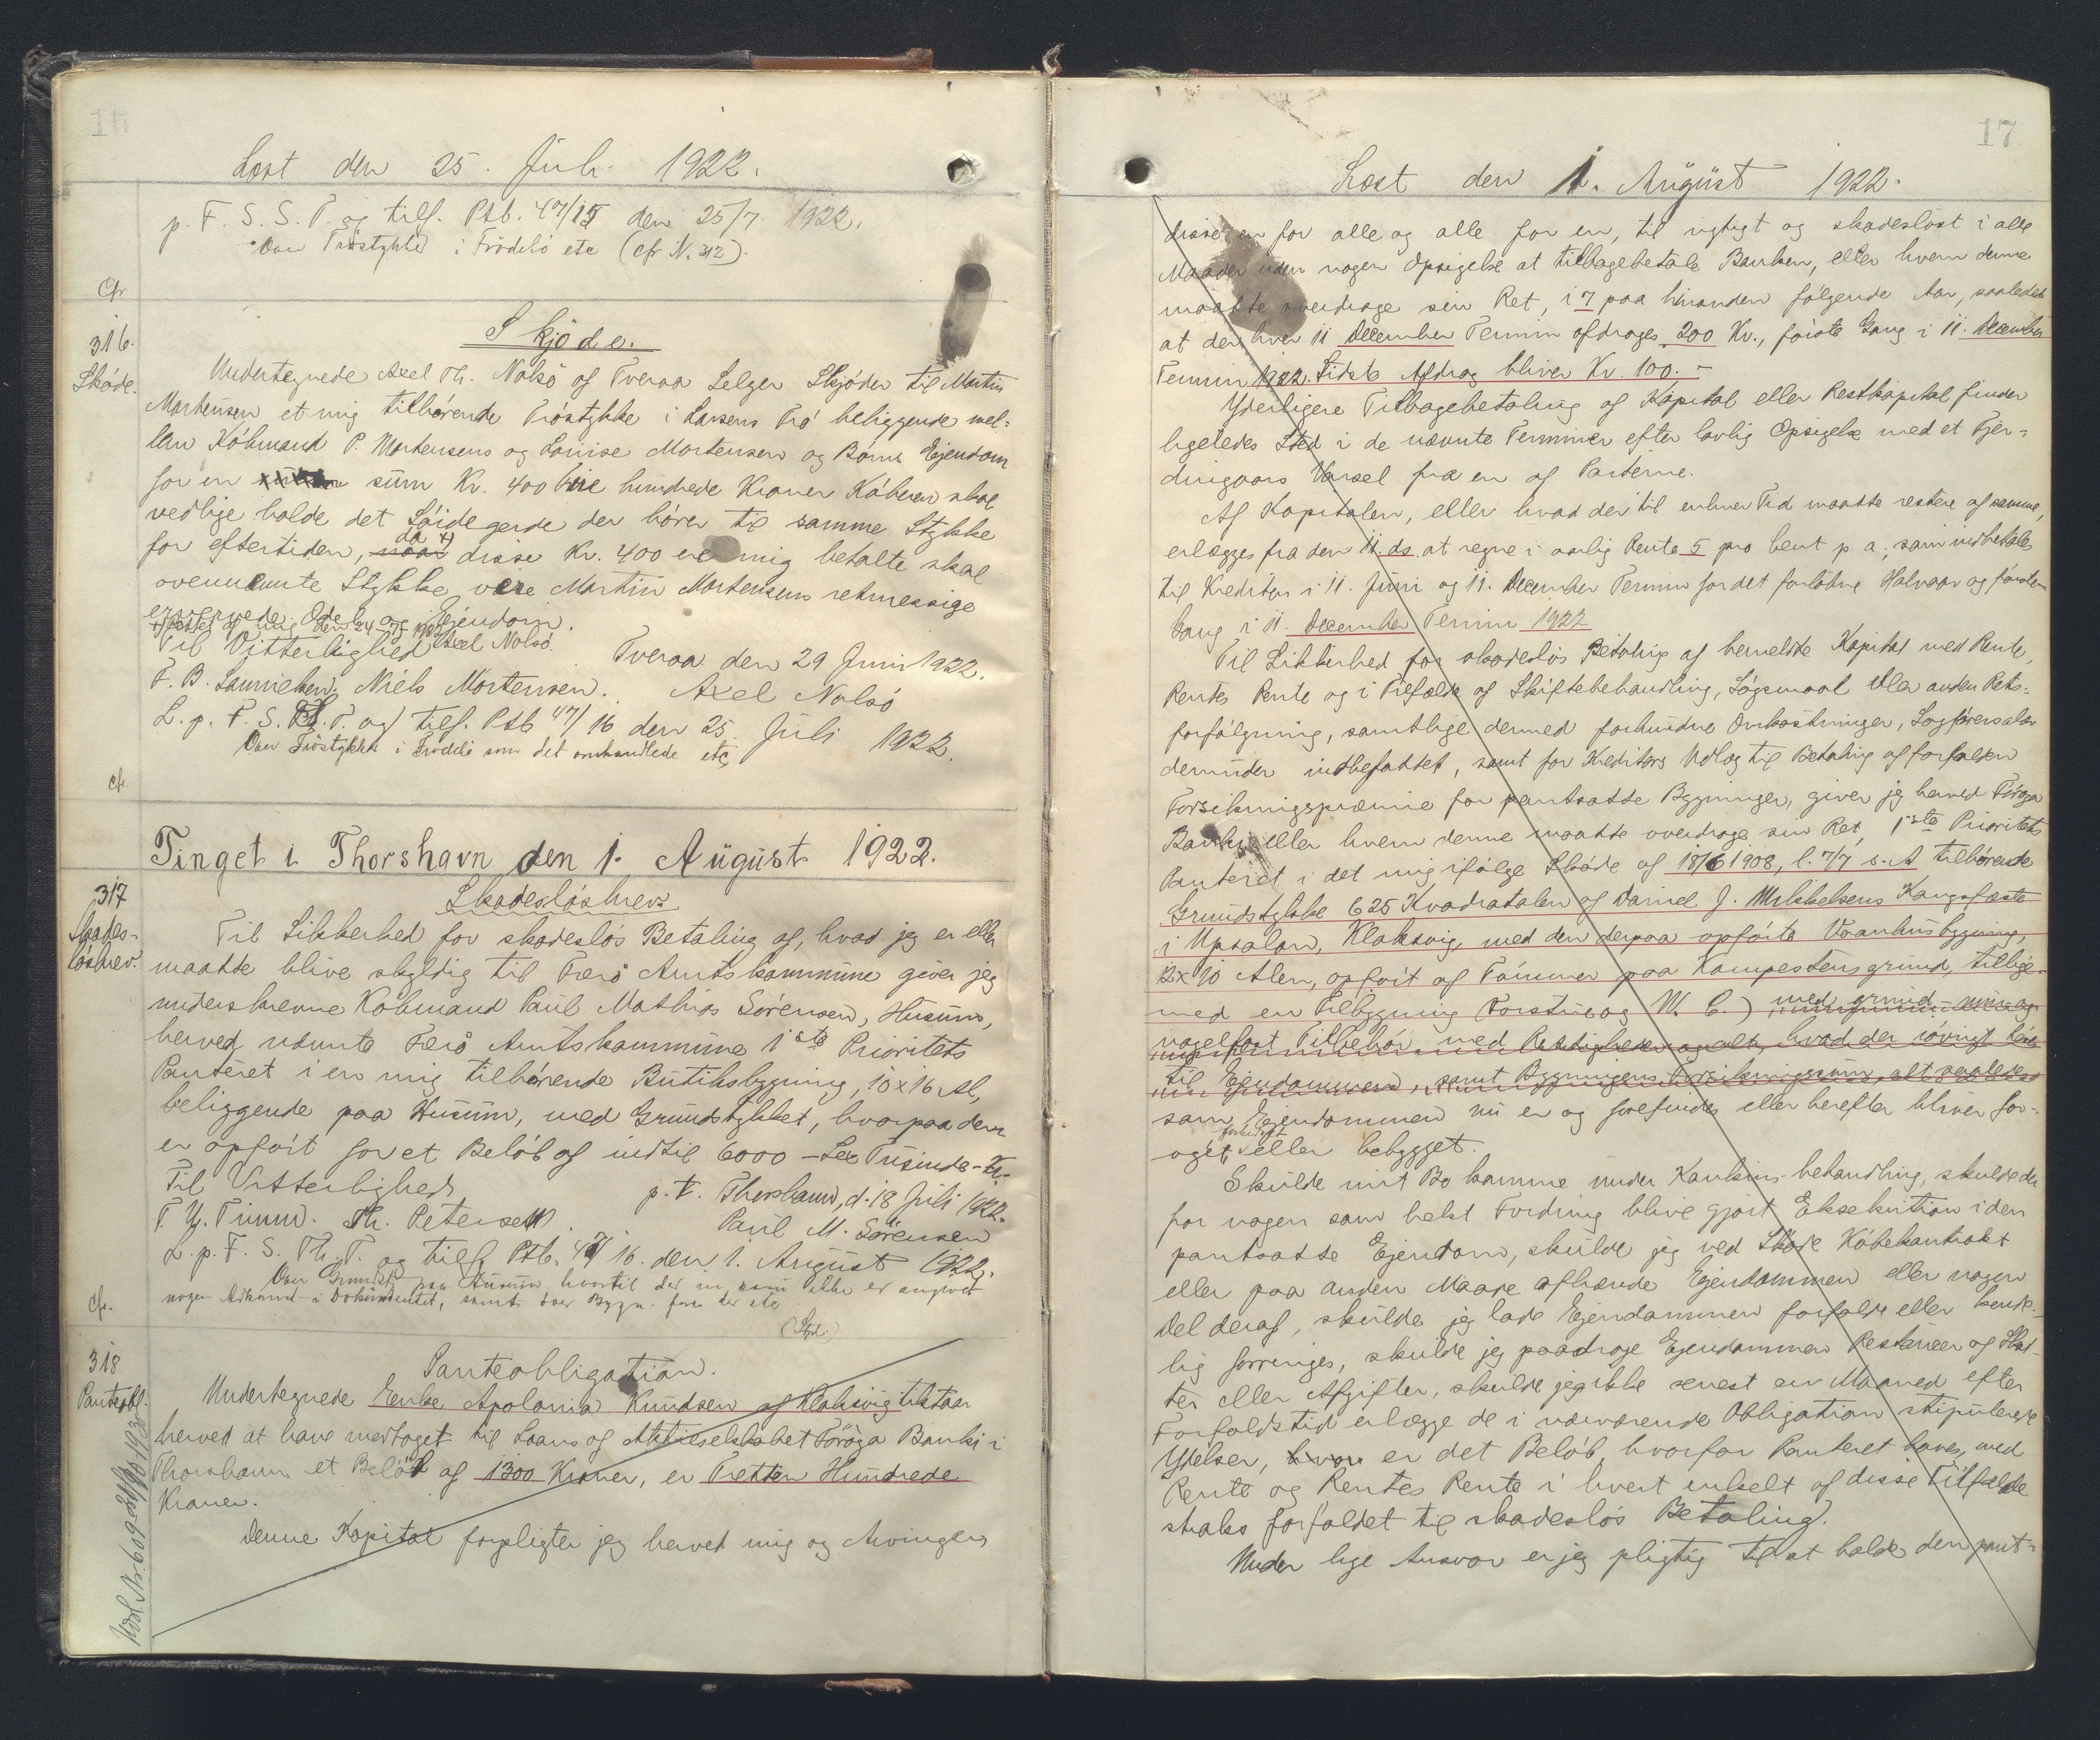 16
Læst den 25. Juli 1922.
p. F. S. S. T. og tilf. Ptb. 47/15 den 25/7. 1922.
Over Tröstykke i Frödebö etc (cfr N. 312).
Cfr
316.
Sköde.
Skjöde.
Undertegnede Axel Th. Nolsö af Tveraa Selger Skjöder til Martin
Mortensen et mig tilhörende Tröstykke i Larsens Trö beliggende mel-
lem Köbmand P. Mortensens og Louise Mortensen og Börns Ejendom
for en sum Kr. 400 fire hundrede Kroner Köberen skal
vedlige holde det Söidegerde der hörer til samme Stykke
for eftertiden, naar da +) disse Kr. 400 ere mig betalte skal
ovennemte Stykke vere Martin Mortensens retmessige
erververde Odel og Ejendom.
+) rettet af mig den 24-7-1922 Axel Nolsö.
Til Vitterlighed
Tveraa den 29 Juni 1922.
F. B. Samuelsen. Niels Mortensen. Axel Nolsö
L. p. F. S. Th. T. og tilf. Ptb 47/16 den 25. Juli 1922.
Over Tröstykke i Frödebö som det omhandlede etc.
cfr.
Tinget i Thorshavn den 1. August 1922.
317
Skades-
lösbrev.
Skadeslösbrev.
Til Sikkerhed for skadeslös Betaling af, hvad jeg er eller
maatte blive skyldig til Færö Amtskommune giver jeg
underskrevne Köbmand Paul Mathias Sörensen, Husum,
herved nævnte Færö Amtskommune 1ste Prioritets
Panteret i en mig tilhörende Butiksbygning, 10 x 16 Al,
beliggende paa Husum, med Grundstykket, hvorpaa den
er opfört for et Belöb af indtil 6000 - Sex Tusinde - Kr.
Til Vitterlighed
p. t. Thorshavn, d. 18 Juli 1922.
Th. Petersen. Paul M. Sörensen
L. p. F. S. Th. T. og tilf. Ptb. 47/16. den 1. August 1922.
Over Grundst. paa Husum hvortil der ikke er angivet
nogen Adkomst i Dokumentet, samt over Bygn. etc
cfr.
318
Panteobl.
Panteobligation.
Undertegnede Enke Apolonia Knudsen af Klaksvig tilstaar
herved at have modtaget til Laans af Aktieselskabet Föroya Banki i
Thorshavn et Belöb af 1300 Kroner, er Tretten Hundrede
Kroner.
Denne Kapital forpligter jeg herved mig og Arvinger,
17
Læst den 1. August 1922.
disse en for alle og alle for en, til rigtigt og skadeslöst i alle
Maader uden nogen Opsigelse at tilbagebetale Banken, eller hvem denne
maatte overdrage sin Ret, i 7 paa hinanden fölgende Aar, saaledes
at der hver 11 December Termin afdrages 200 Kr., förste Gang i 11. December
Termin 1922. Sidste Afdrag bliver Kr. 100. -
Yderligere Tilbagebetaling af Kapital eller Restkapital finder
ligeledes Sted i de nævnte Terminer efter lovlig Opsigelse med et Fjer-
dingaars Varsel fra en af Parterne.
Af Kapitalen, eller hvad der til enhver Tid maatte restere af samme,
erlægges fra den 11. ds. at regne i aarlig Rente 5 pro Cent p. a., som indbetales
til Kreditor i 11. Juni og 11. December Termin for det forlöbne Halvaar og förste
Gang i 11. December Termin 1922
Til Sikkerhed for skadeslös Betaling af bemeldte Kapital med Rente,
Rentes Rente og i Tilfælde af Skiftebehandling, Sögsmaal eller anden Rets-
forfölgning, samtlige dermed forbundne Omkostninger, Sagförersalær
derunder indbefattet, samt for Kreditors Udlæg til Betaling af forfalden
Forsikringspræmie for pantsatte Bygninger, giver jeg herved Föroya
Banki eller hvem denne maatte overdrage sin Ret, 1ste Prioritets
Panteret i det mig ifölge Sköde af 18/6 1908, l. 7/7 s. A tilhörende
Grundstykke 625 Kvadratalen af Daniel J. Mikkelsens Kongsfæste
i Upsalan, Klaksvig, med den derpaa opförte Vaanhusbygning,
12 x 10 Alen, opfört af Tömmer paa Kampestensgrund, tillige-
med en Tilbygning (Forstue og W. C.) med grund- mur- og
nagelfast Tilbehör, med Rettigheder og alt, hvad der iövrigt hörer
til Ejendommen, samt Bygningens Forsikringssum, alt saaledes
som Ejendommen nu er og forefindes eller herefter bliver for-
öget forbedret eller bebygget.
Skulde mit Bo komme under Konkurs-behandling, skulde der
for nogen som helst Fordring blive gjort Eksekution i den
pantsatte Ejendom, skulde jeg ved Sköde Köbekontrakt
eller paa anden Maade afhænde Ejendommen eller nogen
Del deraf, skulde jeg lade Ejendommen forfalde eller kende-
lig forringes, skulde jeg paadrage Ejendommen Restancer af Skat-
ter eller Afgifter, skulde jeg ikke senest en Maaned efter
Forfaldstid erlægge de i nærværende Obligation stipulerede
Ydelser, er det Belöb, hvorfor Panteret haves, med
Rente og Rentes Rente i hvert enkelt af disse Tilfælde
straks forfaldet til skadeslös Betaling.
Under lige Ansvar er jeg pligtig til at holde den pant-